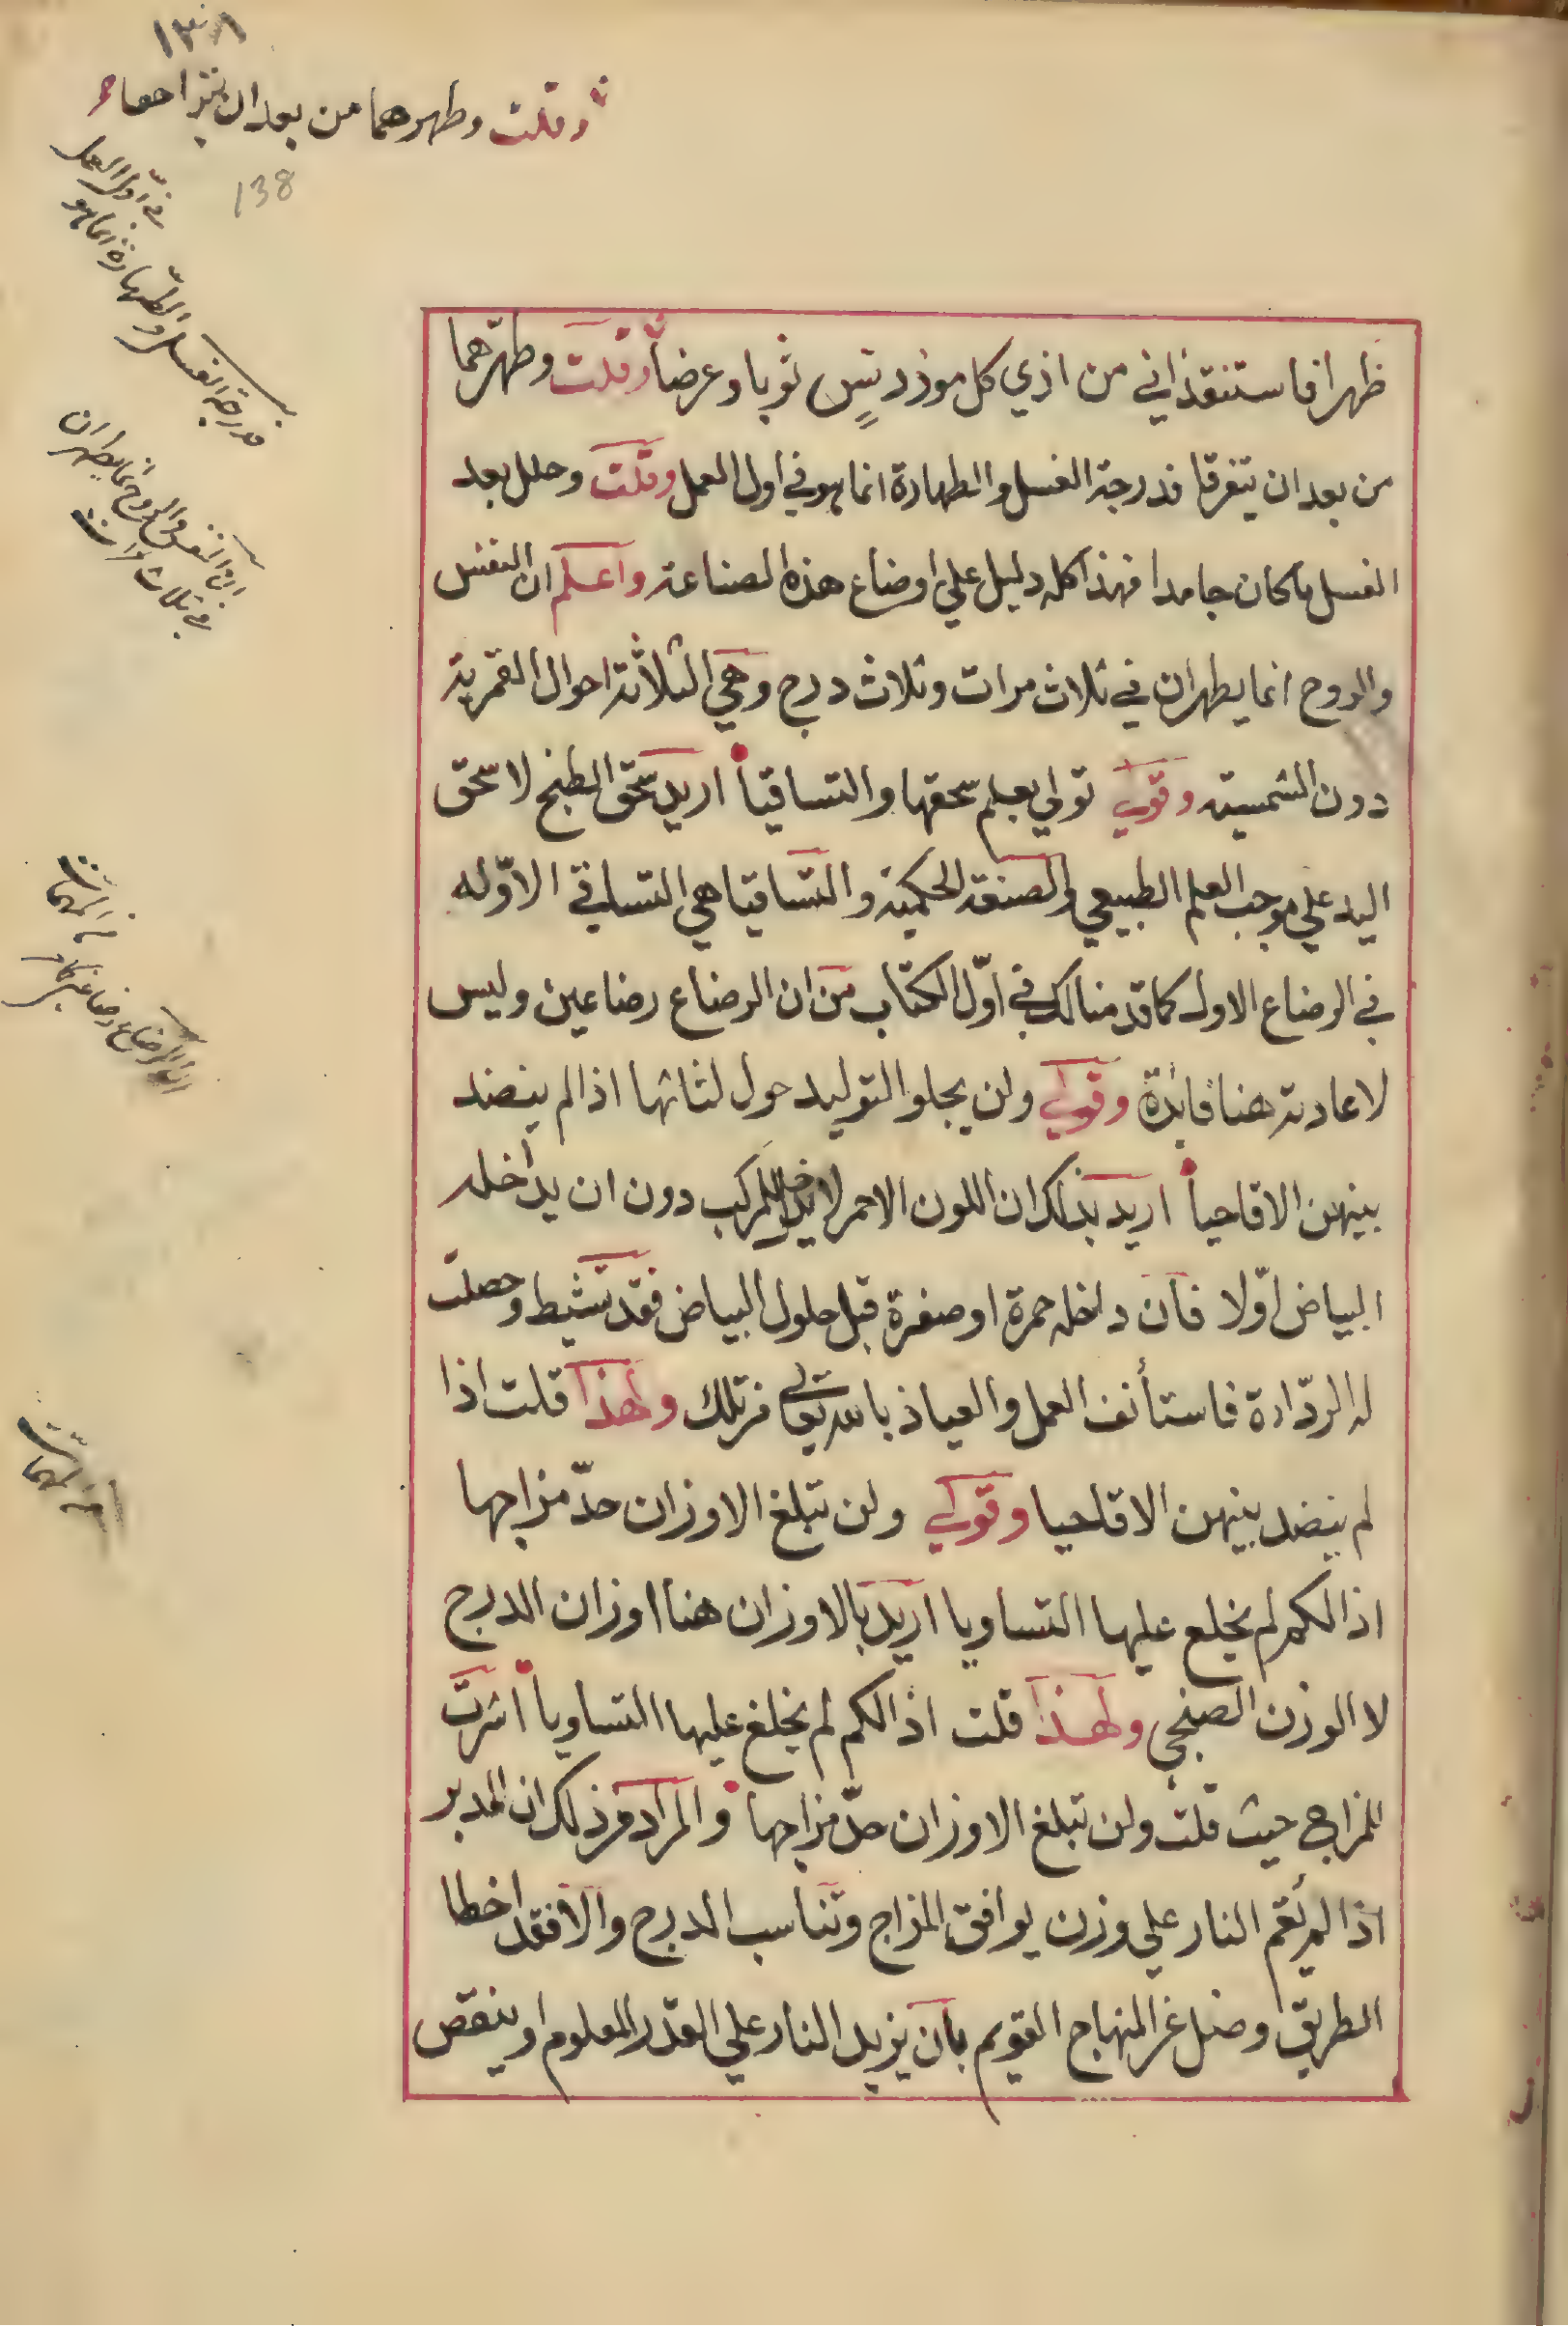 ١٣٨
وقلت وطهرهما من بعد ان
138
في اول العمل
فدرجة الغسل والطهارة انما هو
ان النفس والروح انما يطهران
في ثلاث مرات
ان الرضاع رضاعين
ظهرا فاستنقذاني من اذي كل موذ دنس ثوبا وعرضا وقلت وطهرهما
من بعد ان يتفرقا فدرجة الغسل والطهارة انما هو في اول العمل وقلت وحلل بعد
الغسل ما كان جامدا فهذا كله دليل علي اوضاع هذه الصناعة واعلم ان النفس
والروح انما يطهران في ثلاث مرات وثلاث درج وهي الثلاثة احوال القمرية
دون الشمسية وقولي تولي بعلم سحقها والتساقيا اريد سحق الطبخ لا سحق
اليد علي موجب العلم الطبيعي والصنعة الحكمية والتساقيا هي التساقي الاوله
في الرضاع الاول كما قدمنا لك في اول الكتاب من ان الرضاع رضاعين وليس
لاعادته هنا فايدة وقولي ولن يجلو التوليد حول لثاتها اذا لم ينضد
بينهن الاقاحيا اريد بذلك ان اللون الاحمر لا يدخل للمركب دون ان يداخله
البياض اولا فان داخله حمرة او صفرة قبل حلول البياض فقد تشيط وحصلت
له الردارة فاستأنف العمل والعياذ بالله تعالى من تلك ولهذا قلت اذا
لم ينضد بينهن الاقاحيا وقولي ولن تبلغ الاوزان حد مزاجها
اذا الكم لم يخلع عليها التساويا اريد بالاوزان هنا اوزان الدرج
لا الوزن الصنجي ولهذا قلت اذا الكم لم يخلع عليها التساويا اشرت
للمزاج حيث قلت ولن تبلغ الاوزان حد مزاجها والمراد من ذلك ان المدبر
اذا لم يقم النار علي وزن يوافق المزاج وتناسب الدرج والا فقد اخطا
الطريق وضل عن المنهاج القويم بان يزيد النار علي القدر المعلوم او ينقص